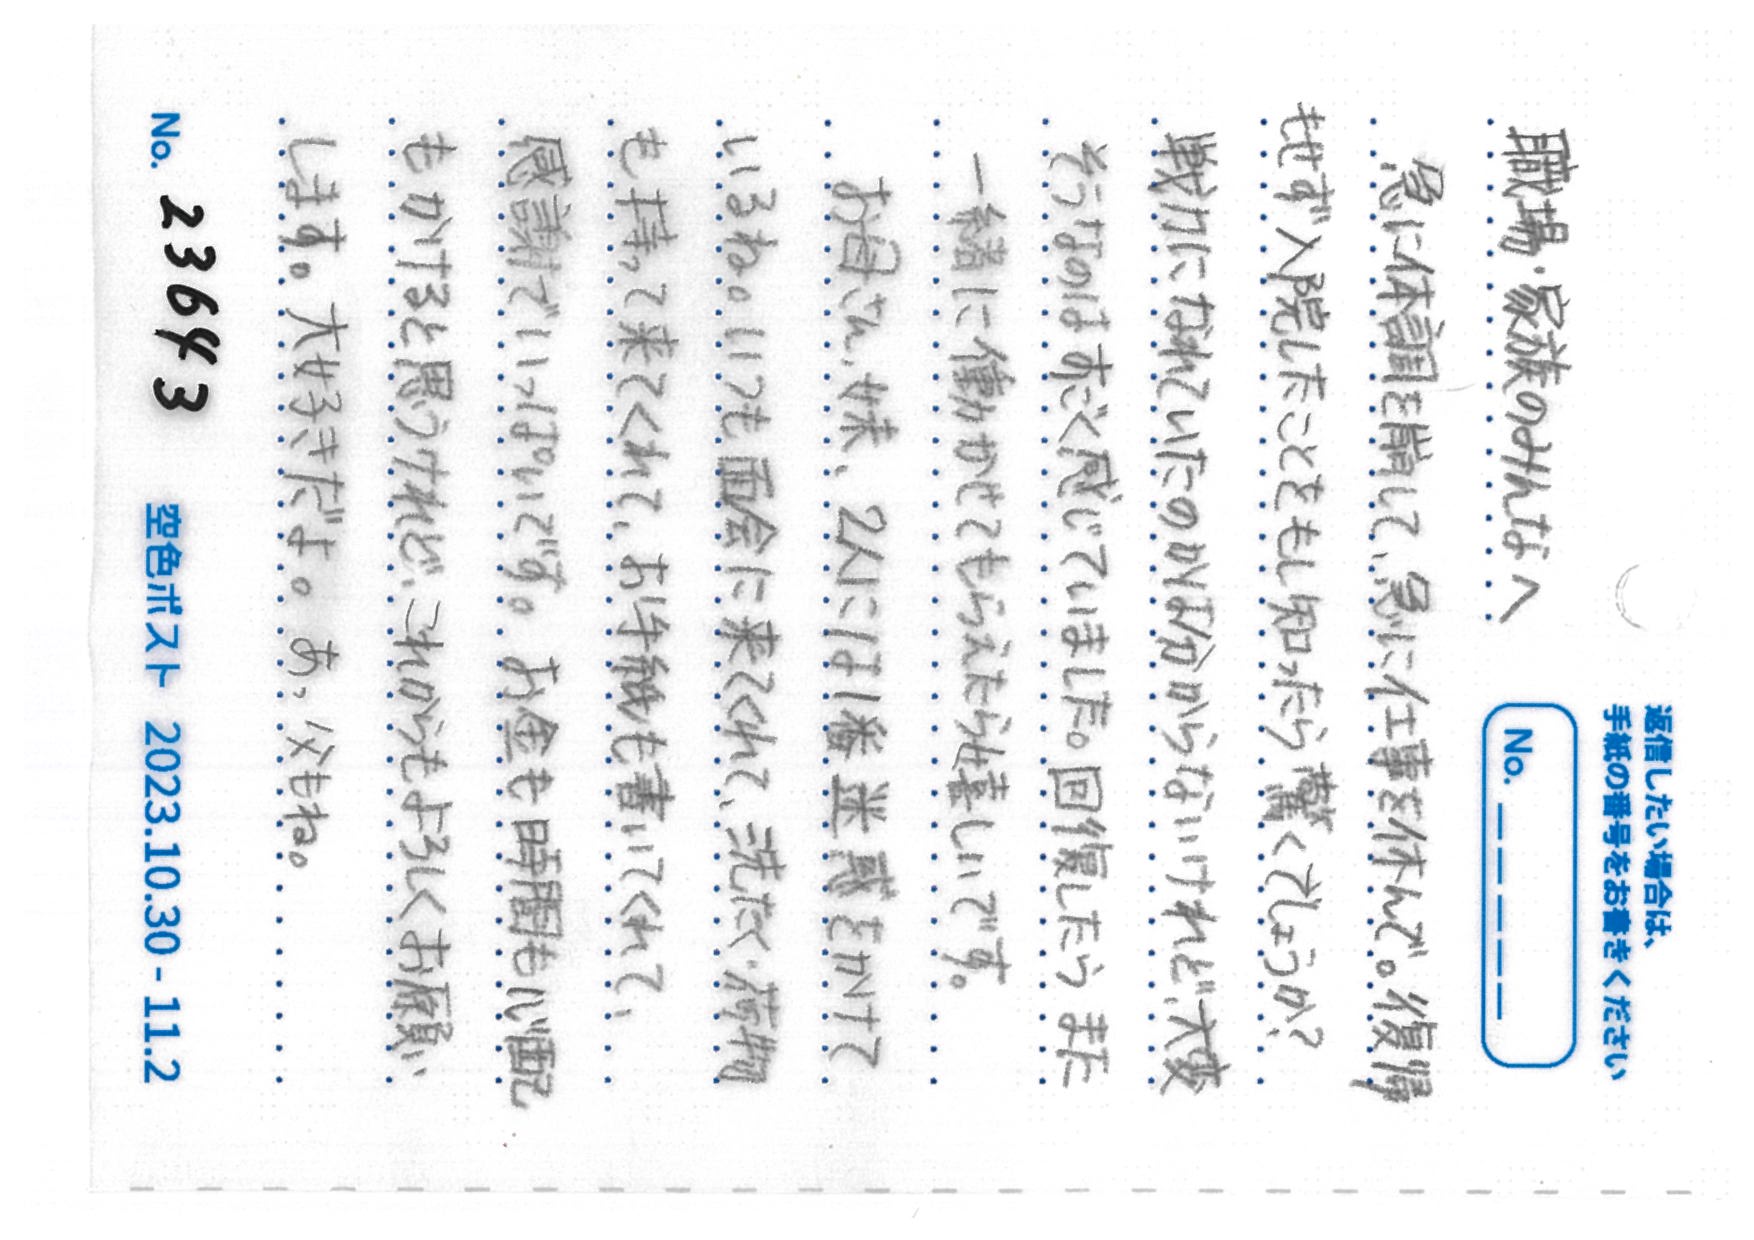 返信したい場合は、
手紙の番号をお書きください
No. _ _ _ _ _
職場・家族のみんなへ
急に体調を崩して、急に仕事を休んで。復帰
もせず入院したことをもし知ったら驚くでしょうか?
戦力になれていたのかは分からないけれど、大変
そうなのはすごく感じていました。回復したらまた
一緒に働かせてもらえたら嬉しいです。
お母さん、妹、2人には1番迷惑をかけて
いるね。いつも面会に来てくれて、洗たく・荷物
も持って来てくれて、お手紙も書いてくれて、
感謝でいっぱいです。お金も時間も心配
もかけると思うけれど、これからもよろしくお願い
します。大好きだよ。あっ父もね。
No. 23643 空色ポスト 2023.10.30 - 11.2